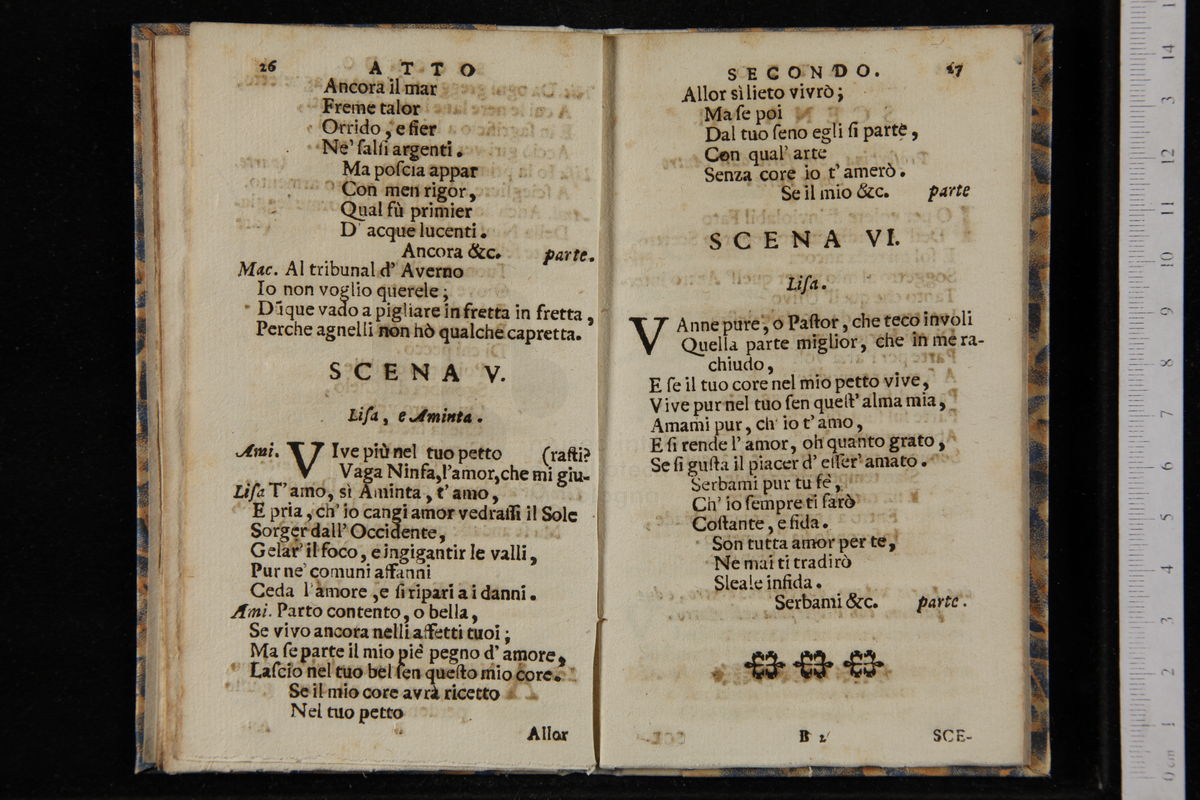 26 ATTO
Ancora il mar
Freme talor
Orrido, e fier
Ne' salsi argenti.
Ma poscia appar
Con men rigor,
Qual fù primier
D' acque lucenti.
Ancora &c. parte.
Mac. Al tribunal d' Averno
Io non voglio querele;
Dūque vado a pigliare in fretta in fretta,
Perche agnelli non hò qualche capretta.
SCENA V.
Lisa, e Aminta.
Ami. VIve più nel tuo petto (rasti?
Vaga Ninfa, l'amor, che mi giu-
Lisa T' amo, sì Aminta, t' amo,
E pria, ch' io cangi amor vedrassi il Sole
Sorger dall' Occidente,
Gelar' il foco, e ingigantir le valli,
Pur ne' comuni affanni
Ceda l'amore, e si ripari a i danni.
Ami. Parto contento, o bella,
Se vivo ancora nelli affetti tuoi;
Ma se parte il mio piè pegno d' amore,
Lascio nel tuo bel sen questo mio core.
Se il mio core avrà ricetto
Nel tuo petto
Allor
SECONDO. 27
Allor sì lieto vivrò;
Ma se poi
Dal tuo seno egli si parte,
Con qual' arte
Senza core io t' amerò.
Se il mio &c. parte
SCENA VI.
Lisa.
VAnne pure, o Pastor, che teco involi
Quella parte miglior, che in me ra-
chiudo,
E se il tuo core nel mio petto vive,
Vive pur nel tuo sen quest' alma mia,
Amami pur, ch' io t' amo,
E si rende l' amor, oh quanto grato,
Se si gusta il piacer d' esser' amato.
Serbami pur tu fè,
Ch' io sempre ti sarò
Costante, e fida.
Son tutta amor per te,
Ne mai ti tradirò
Sleale infida.
Serbami &c. parte.
B 2 SCE-
14
13
12
11
10
9
8
7
6
5
4
3
2
1
0 cm